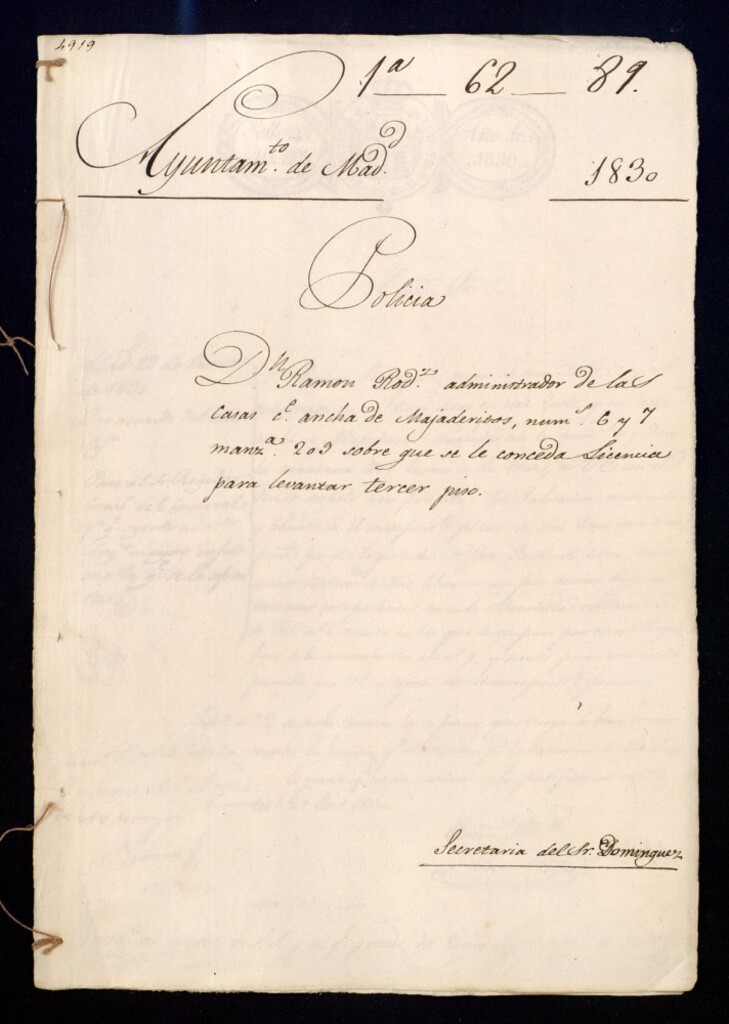 4919
1ª — 62 — 89.
Ayuntam.to de Mad.d 1830
Policia
D.n Ramon Rod.z administrador de las
casas c.e ancha de Majaderitos, num.s 6 y 7
manz.a 203 sobre que se le conceda Licencia
para levantar tercer piso.
Secretaria del Sr. Dominguez